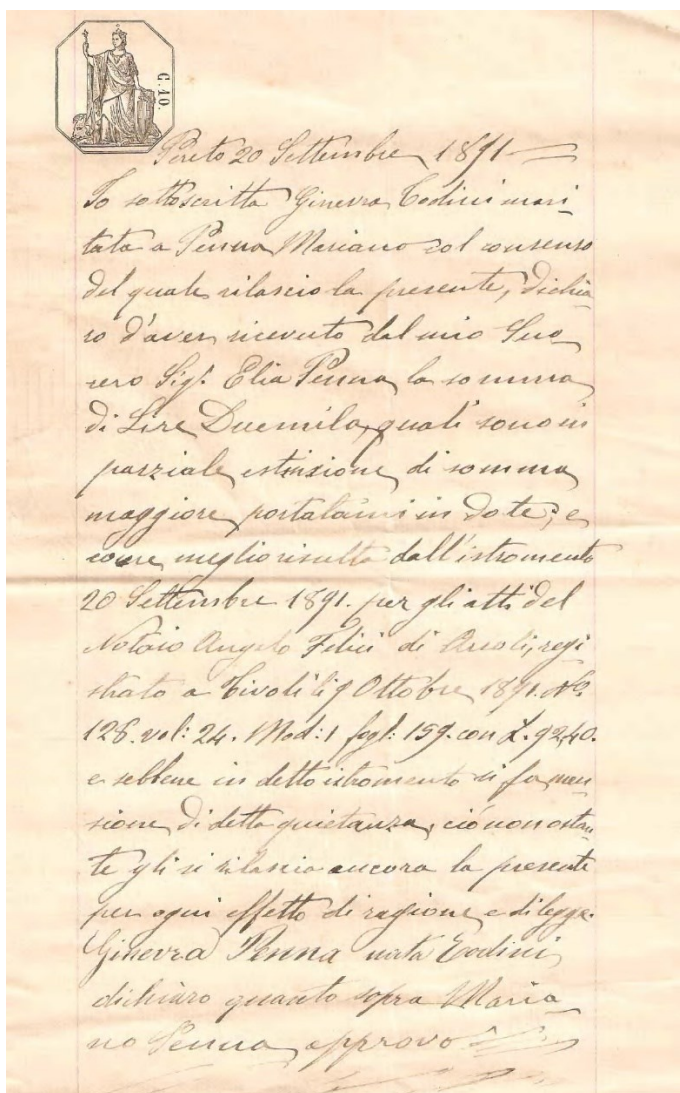 C. 10.
Pereto 20 Settembre 1891
Io sottoscritta Ginevra Todini mari-
tata a Penna Mariano col consenso
del quale rilascio la presente, dichia-
ro d'aver ricevuto dal mio Suo-
cero Sig. Elia Penna la somma
di Lire Duemila, quali sono in
parziale estinzione di somma
maggiore portatami in dote; e
come meglio risulta dall'istromento
20 Settembre 1891. per gli atti del
Notaio Angelo Felici di Arsoli, regi
strato a Tivoli li 9 Ottobre 1891. No.
128. vol: 24. Mod: 1 fogl: 159. con L. 92,40.
e sebbene in detto istromento si fa men-
zione di detta quietanza, ciò non ostan-
te gli si rilascia ancora la presente
per ogni effetto di ragione e di legge.
Ginevra Penna nata Todini
dichiaro quanto sopra Maria-
no Penna approvo